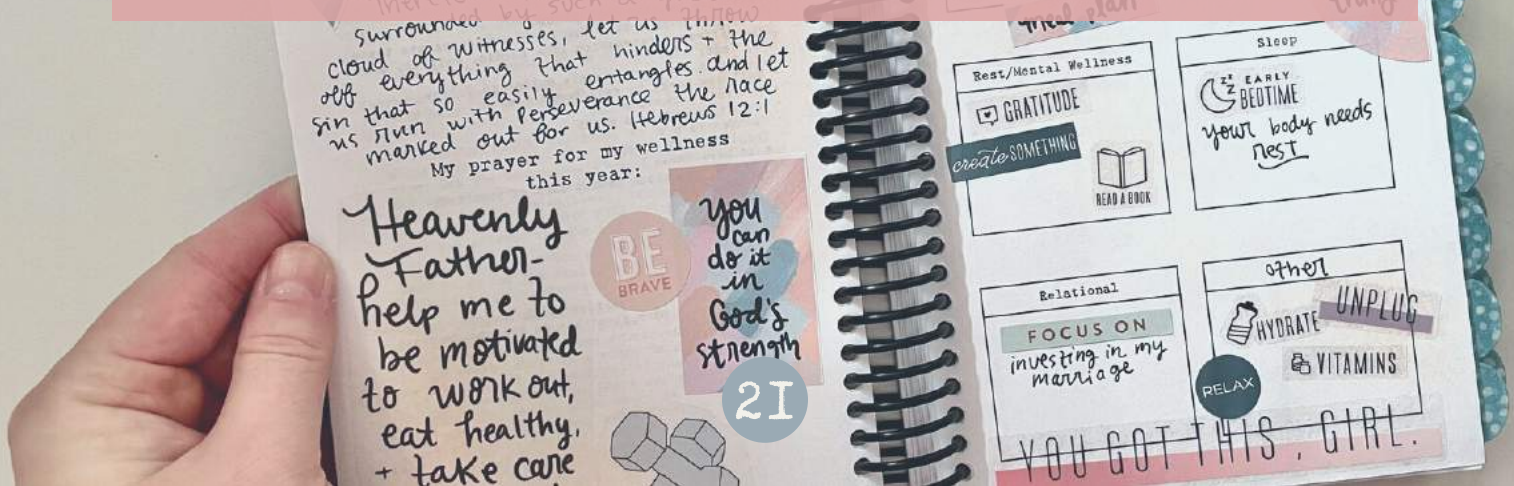 surrounded by such a
cloud of witnesses, let us throw
off everything that hinders + the
sin that so easily entangles. and let
us run with perseverance the race
marked out for us. Hebrews 12:1
My prayer for my wellness
this year:
Heavenly
Father-
help me to
be motivated
to work out,
eat healthy,
+ take care
BE
BRAVE
you
can
do it
in
God's
strength
21
meal plan
Rest/Mental Wellness
GRATITUDE
create SOMETHING
READ A BOOK
Sleep
zzz EARLY
BEDTIME
your body needs
rest
Relational
FOCUS ON
investing in my
marriage
other
HYDRATE
UNPLUG
VITAMINS
RELAX
YOU GOT THIS, GIRL.